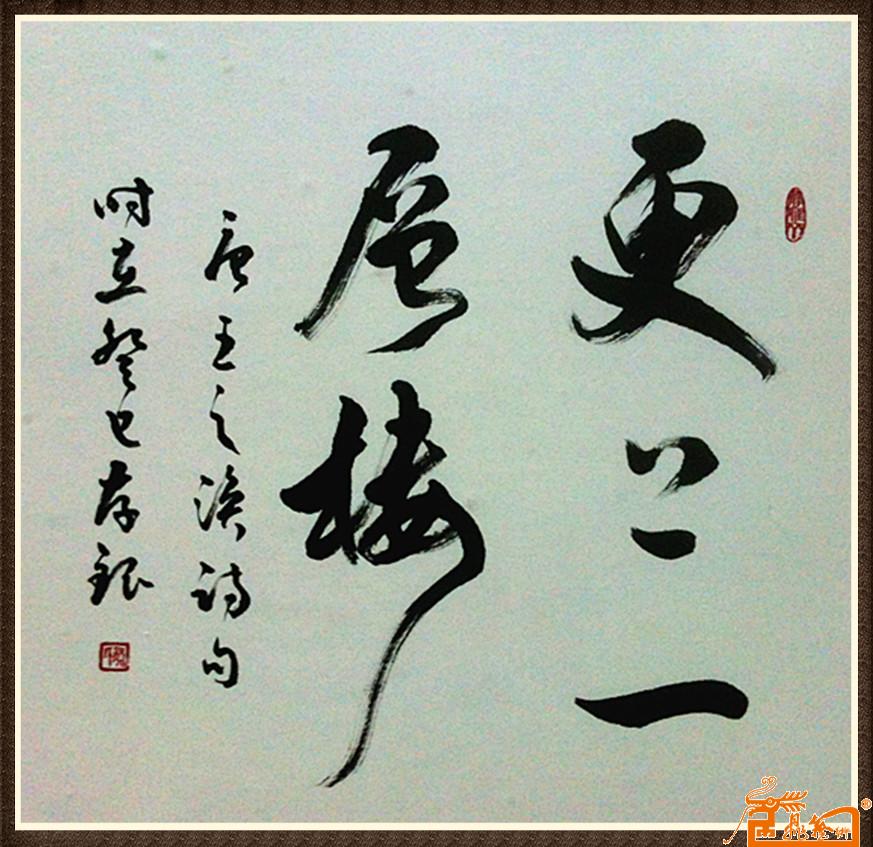 更上一
层楼
唐王之涣诗句
时在癸巳存银